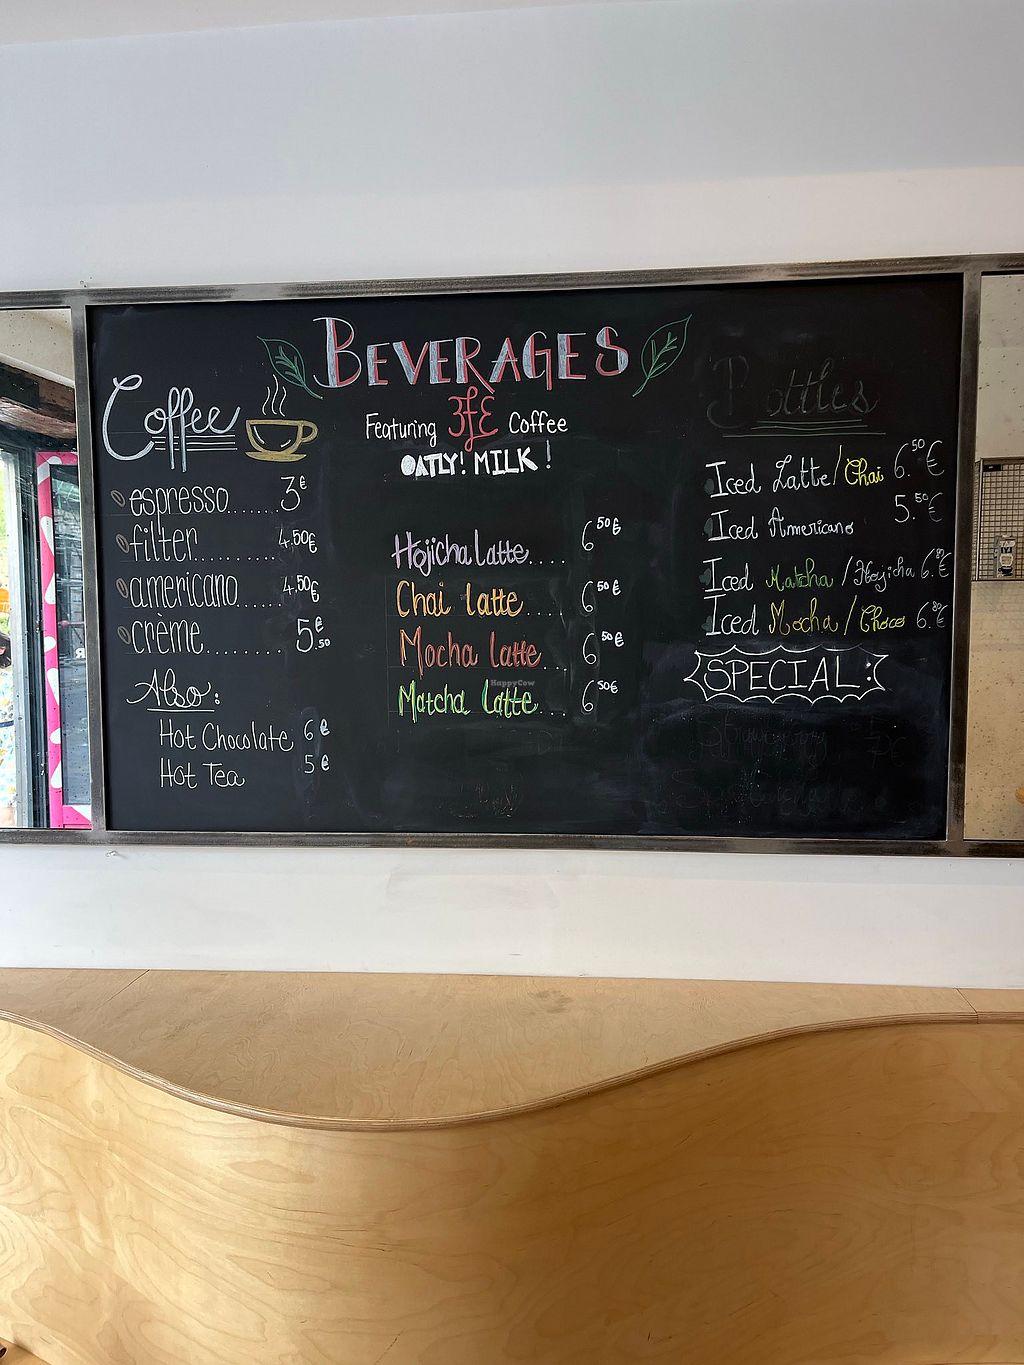 BEVERAGES
Featuring 3FE Coffee
OATLY! MILK!
Coffee
espresso.......3€
filter..........4.50€
americano......4.50€
crème.........5€.50
Also:
Hot Chocolate 6€
Hot Tea 5€
Hojicha latte..... 6 50€
Chai latte.... 6.50€
Mocha latte... 6 50€
Matcha latte.... 6 50€
Bottles
Iced Latte/Chai 6.50€
Iced Americano 5.50€
Iced Matcha / Hojicha 6.€
Iced Mocha / Choco 6.€
SPECIAL:
Strawberry
HappyCow